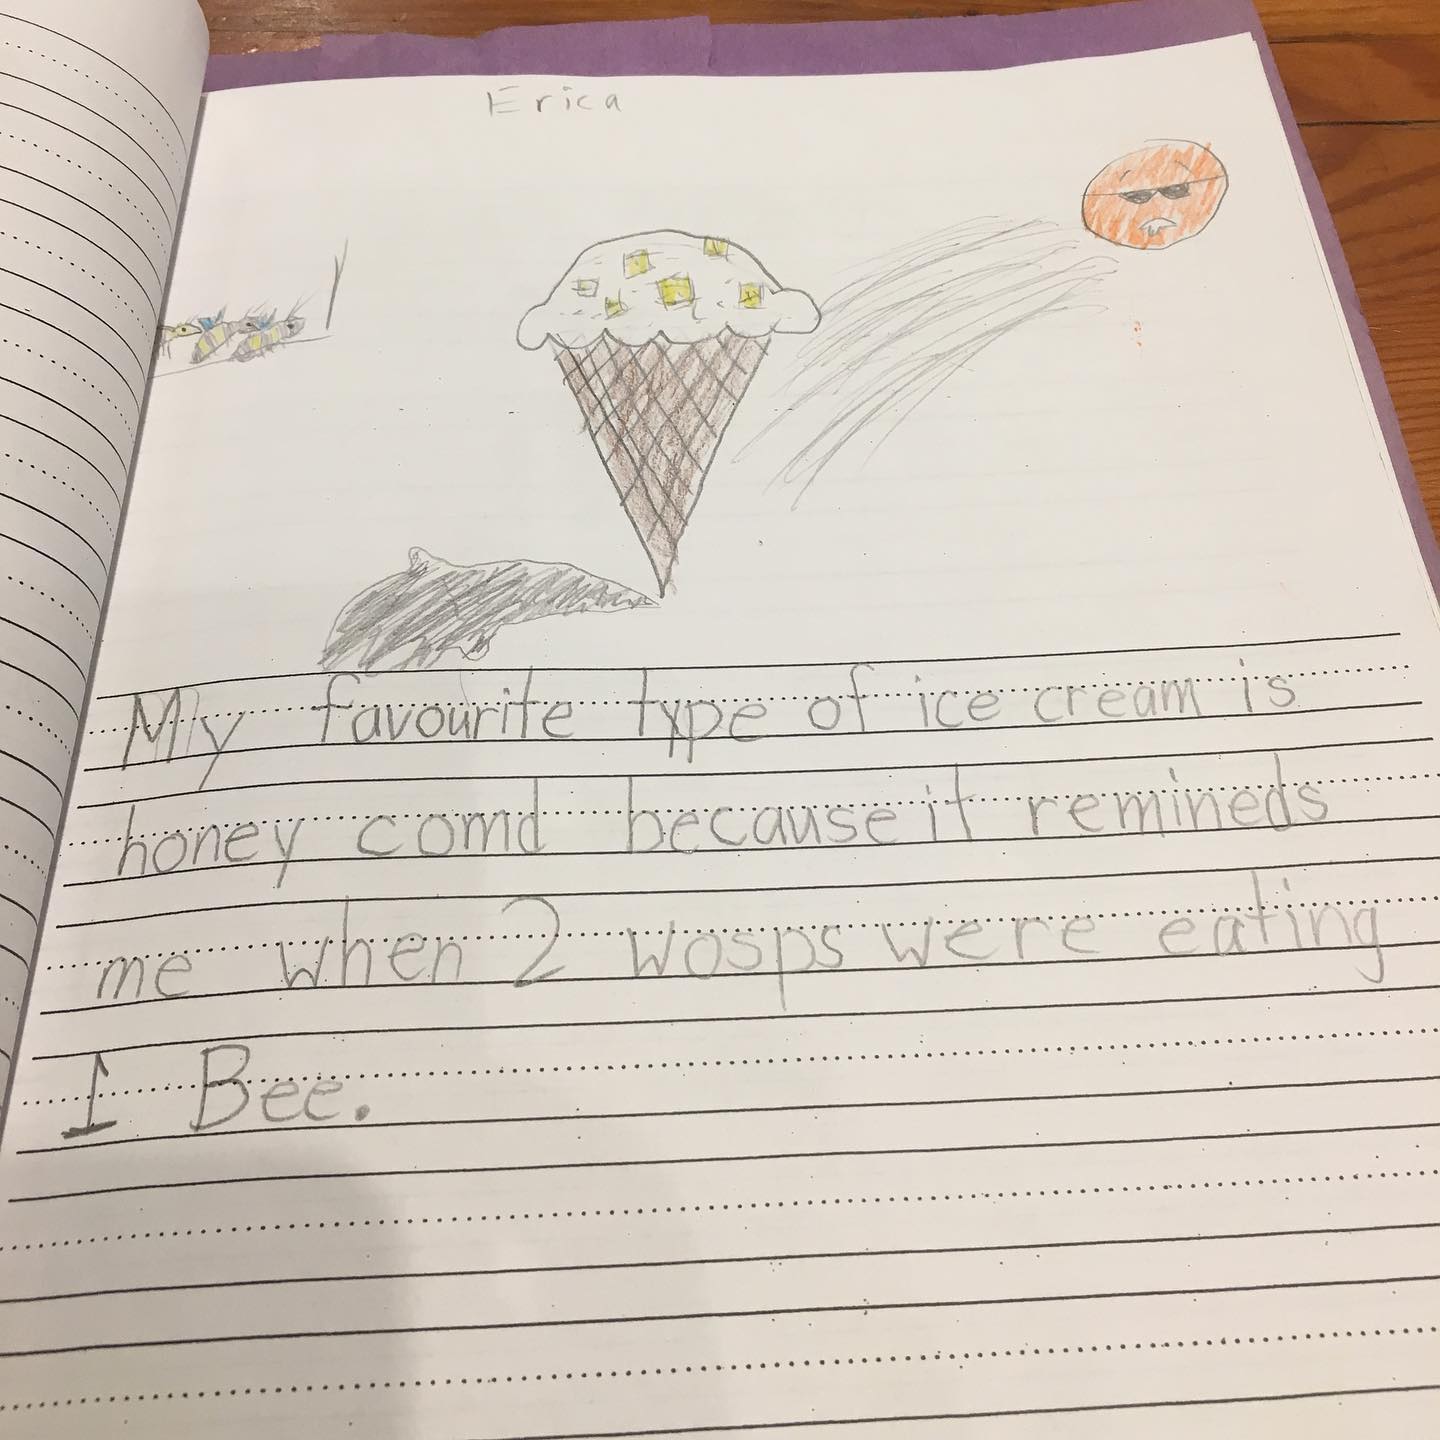 Erica
My favourite type of ice cream is
honey comd because it remineds
me when 2 wosps were eating
1 Bee.